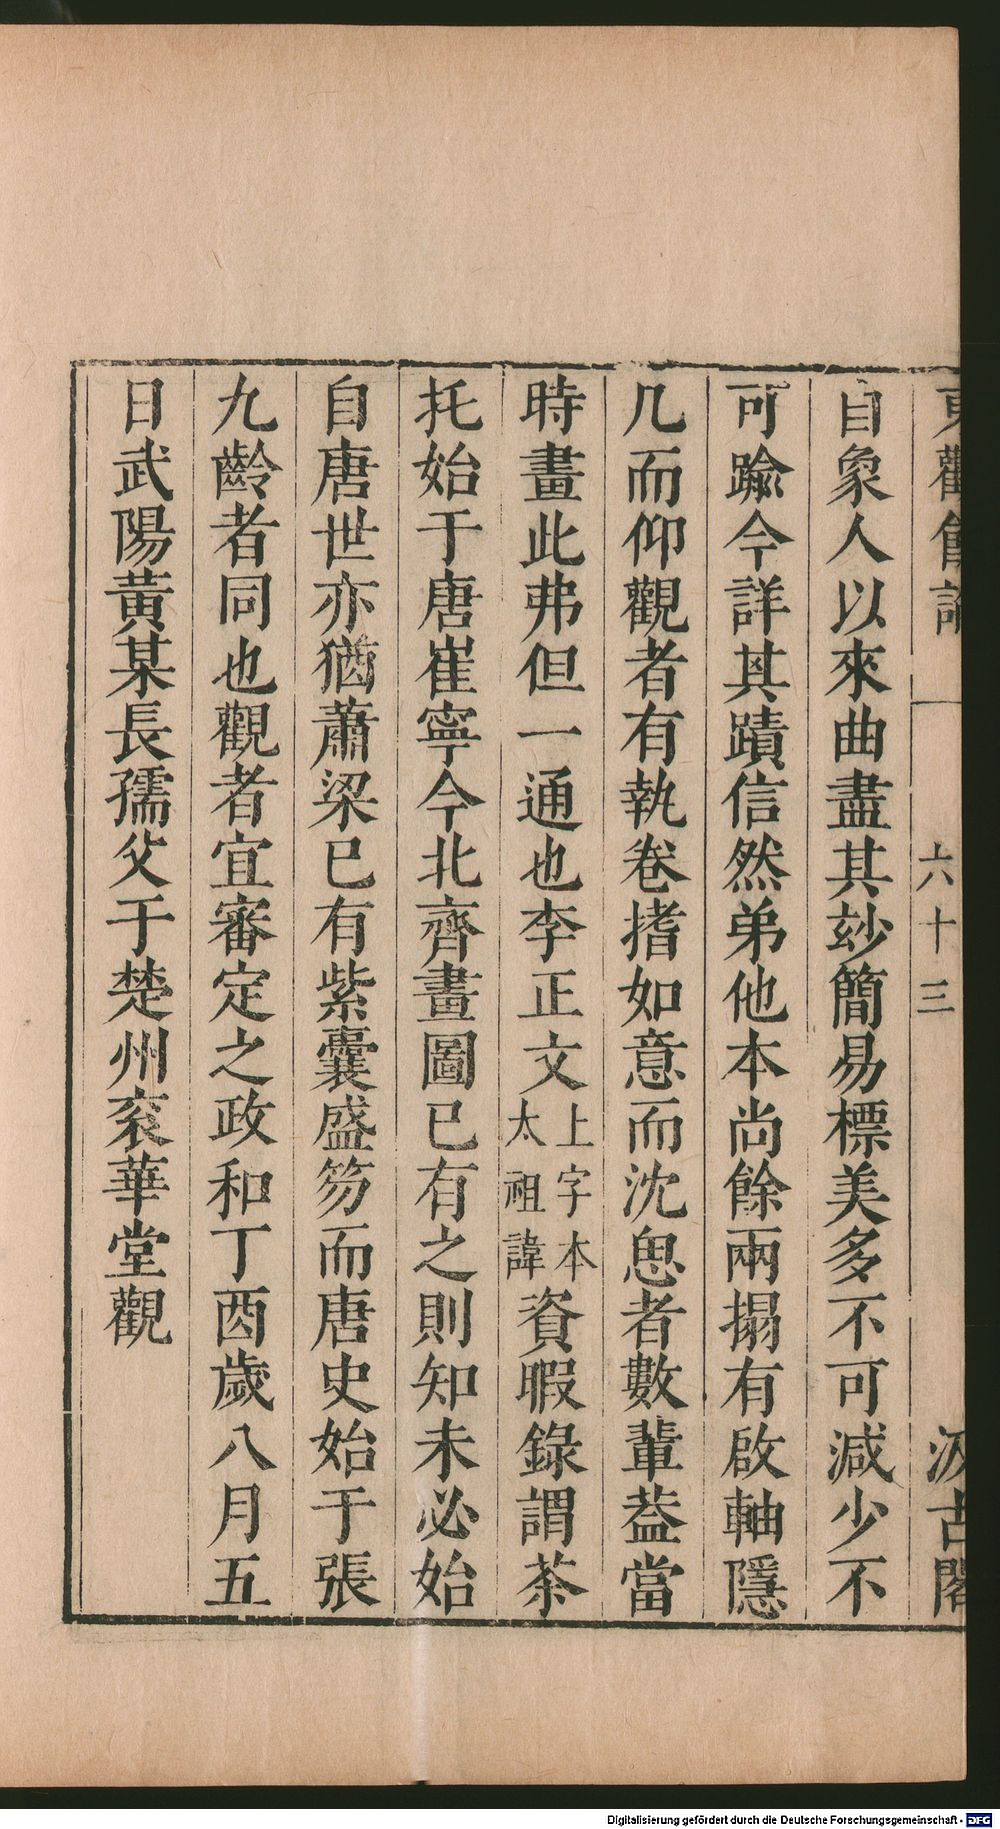 東觀餘論 六十三 汲古閣
自象人以來曲盡其玅簡易標美多不可減少不
可踰今詳其蹟信然弟他本尚餘兩搨有啟軸隱
几而仰觀者有執卷搘如意而沈思者數輩葢當
時畫此弗但一通也李正文上字本太祖諱資暇錄謂茶
托始于唐崔寧今北齊畫圖已有之則知未必始
自唐世亦猶蕭梁已有紫囊盛笏而唐史始于張
九齡者同也觀者宜審定之政和丁酉歲八月五
日武陽黃某長孺父于楚州衮華堂觀
Digitalisierung gefördert durch die Deutsche Forschungsgemeinschaft - DFG